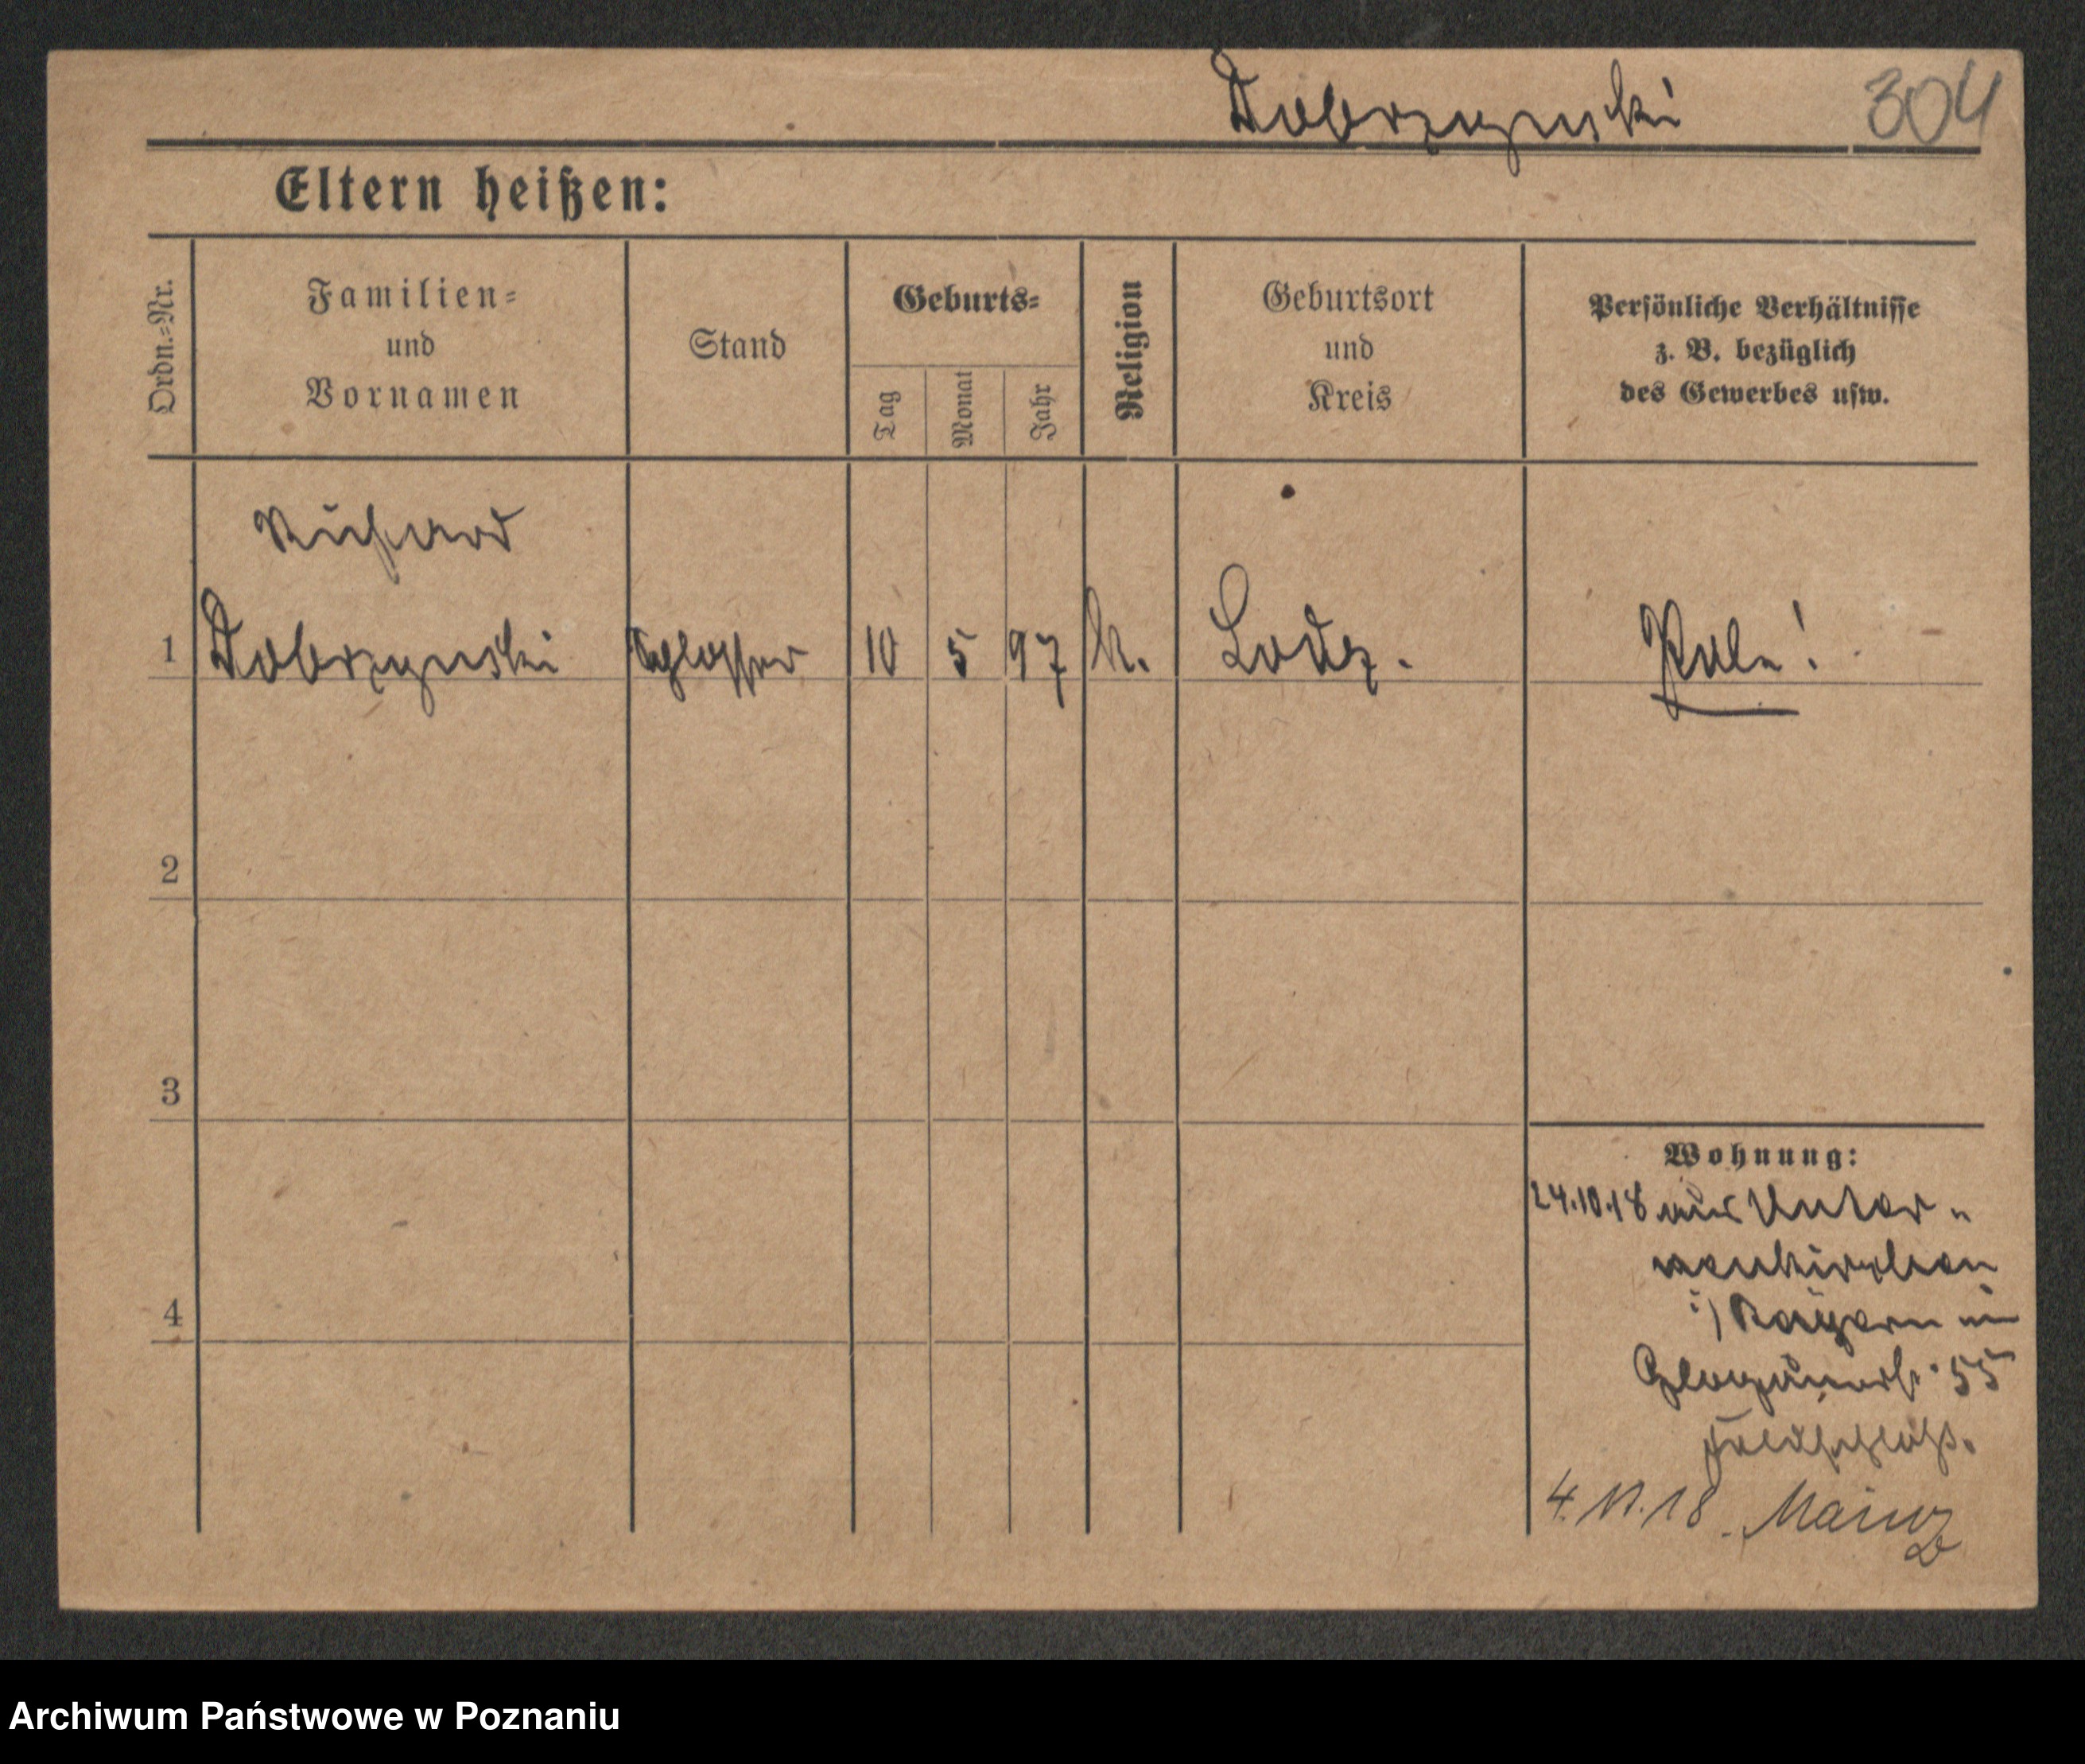 Dobrzynski 304
Eltern heißen:
Ordn.=Nr.
Familien=
und
Vornamen
Stand
Geburts=
Tag
Monat
Jahr
Religion
Geburtsort
und
Kreis
Persönliche Verhältnisse
z. B. bezüglich
des Gewerbes usw.
Richard
1 Dobrzynski Schlosser 10 5 97 k. Lodz. Pole!
2
3
4
Wohnung:
24.10.18 aus Unter-
neukirchen
i/ Bayern in
Glogauerstr. 55
Feldschloß.
4.11.18. Mainz
Archiwum Państwowe w Poznaniu